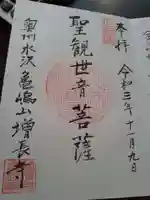 奉拝
令和三年十一月九日
聖観世音菩薩
奥州水沢 亀嶋山 増長寺